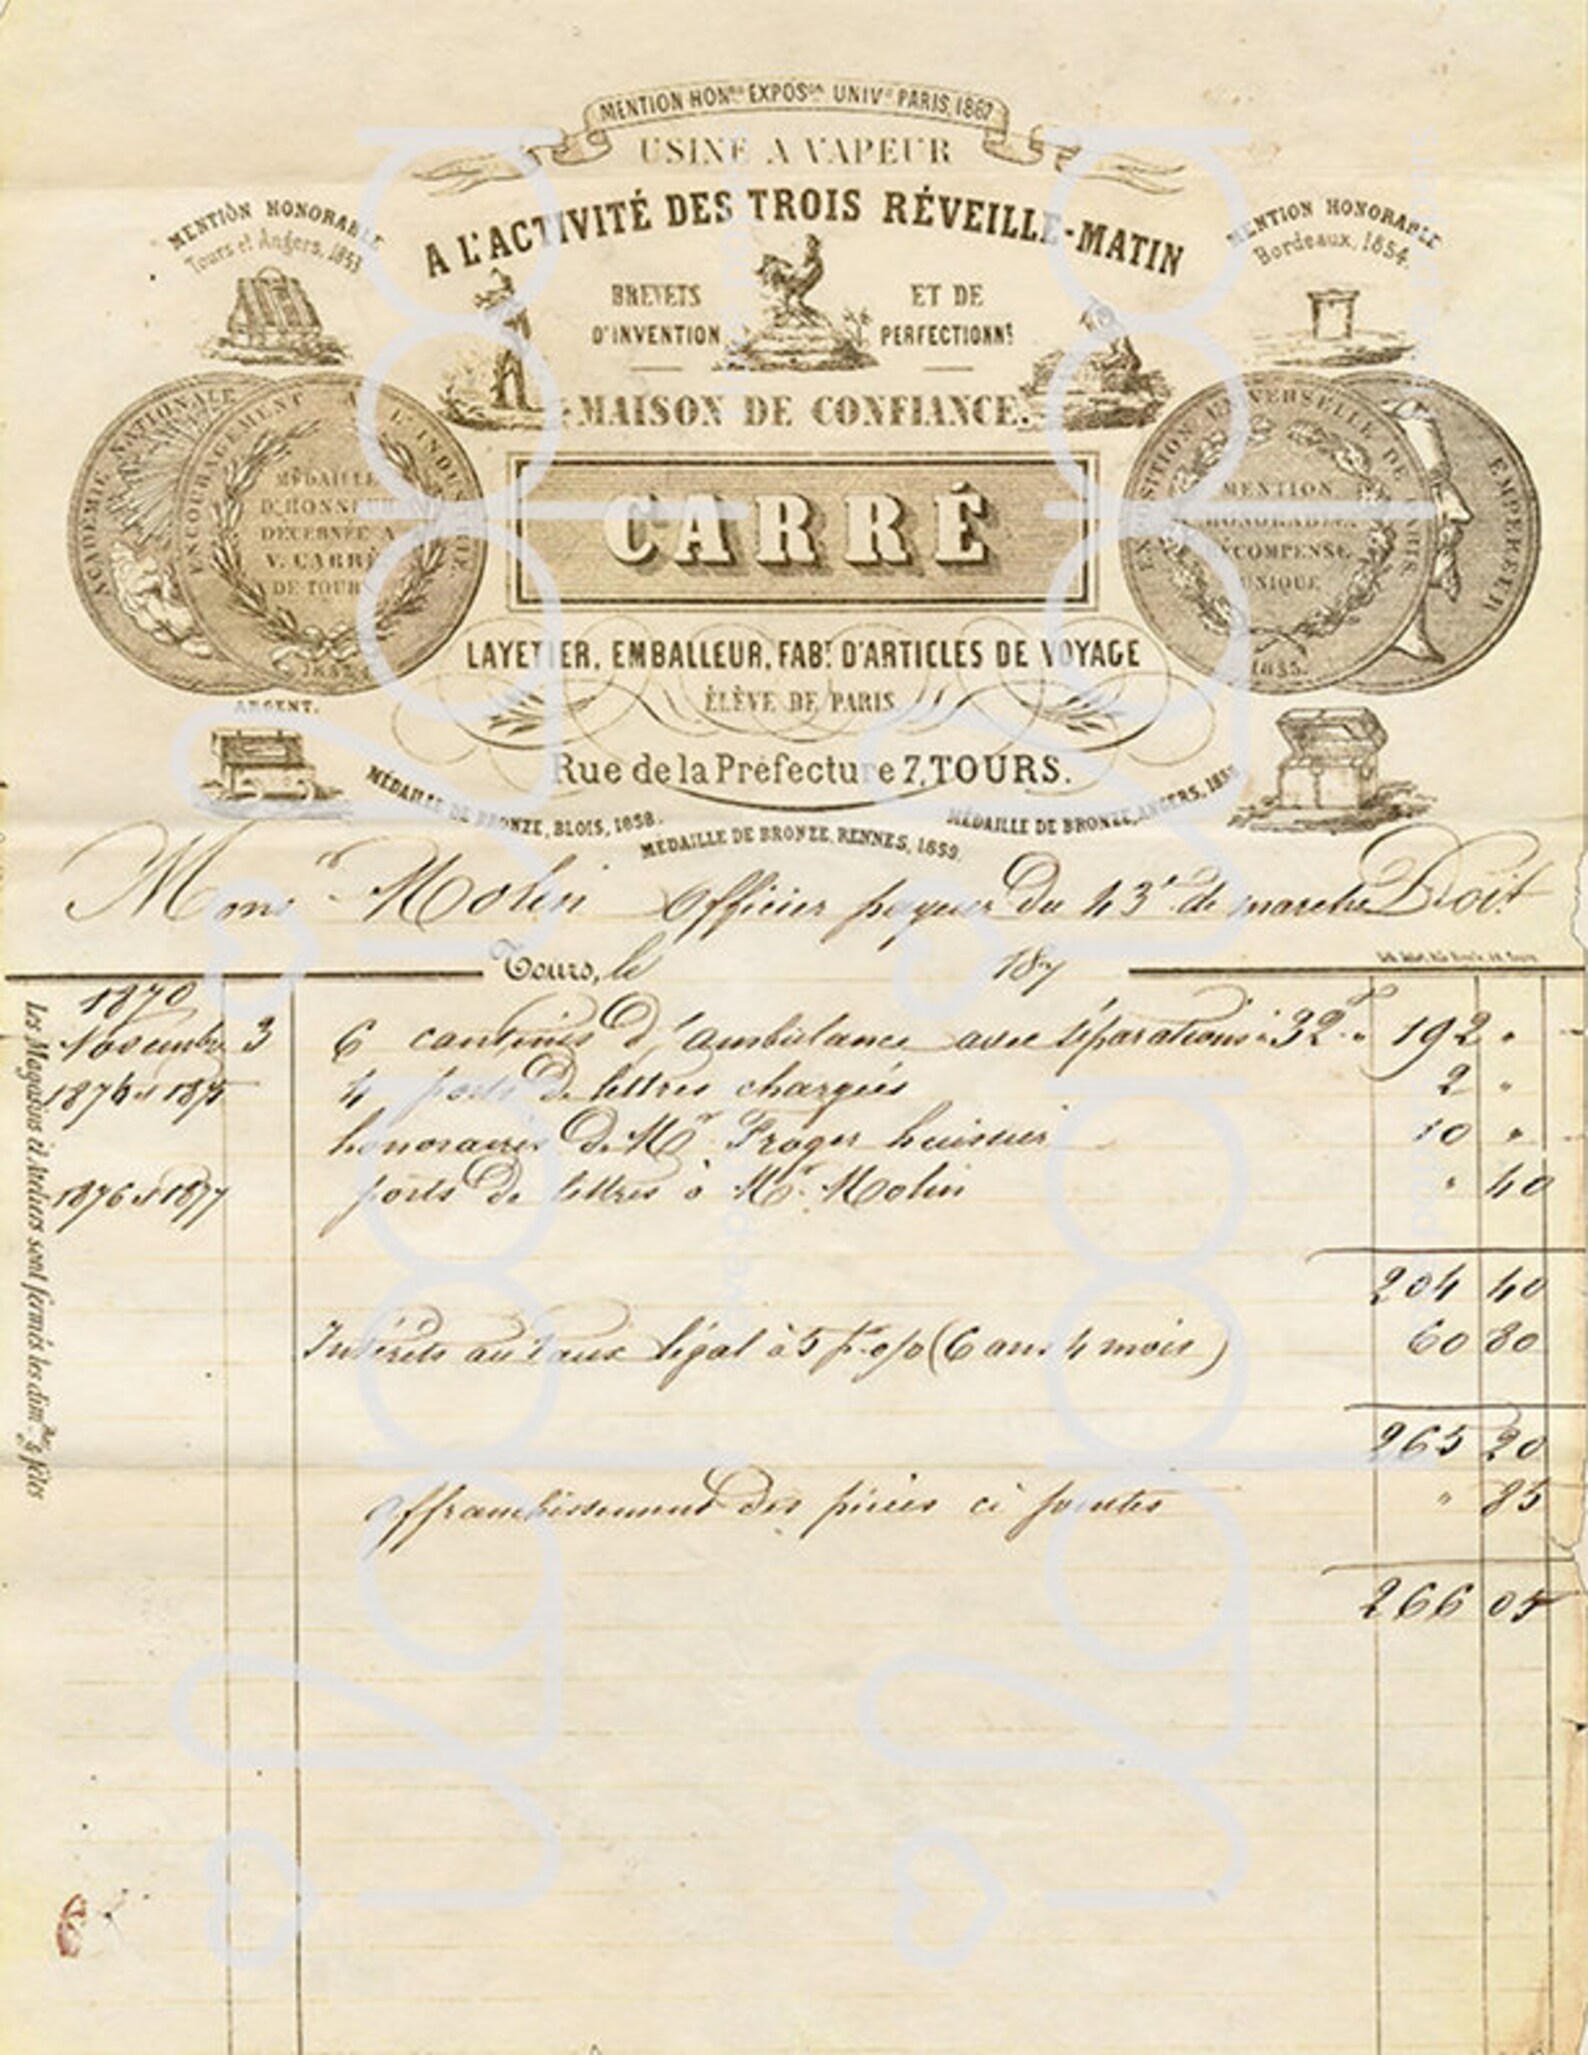 MENTION HON.ble EXPOS.on UNIV.le PARIS, 1867
USINE A VAPEUR
A L'ACTIVITÉ DES TROIS RÉVEILLE-MATIN
MENTION HONORABLE
Tours et Angers, 1853
MENTION HONORABLE
Bordeaux, 1854.
BREVETS ET DE
D'INVENTION PERFECTIONN.t
MAISON DE CONFIANCE.
ACADEMIE NATIONALE
ENCOURAGEMENT A L'INDUSTRIE.
MÉDAILLE
D'HONNEUR
DECERNÉE A
V. CARRÉ
DE TOURS
ARGENT.
CARRÉ
EXPOSITION UNIVERSELLE DE PARIS.
MENTION
HONORABLE
RÉCOMPENSE
UNIQUE
EMPEREUR
LAYETIER, EMBALLEUR, FAB.T D'ARTICLES DE VOYAGE
ÉLÈVE DE PARIS
Rue de la Préfecture 7, TOURS.
MÉDAILLE DE BRONZE, BLOIS, 1858.
MÉDAILLE DE BRONZE, RENNES, 1859.
MÉDAILLE DE BRONZE, ANGERS,
Monsr Molin Officier payeur du 43e de marche Doit
Tours, le 187
1870
Novembre 3 6 cantines d'ambulance avec séparations à 32f " 192 "
1874 et 1875 4 ports de lettres chargées 2 "
honoraires de Mr Froger huissier 10 "
1876 et 1877 ports de lettres à Mr Molin " 40
204 40
Intérêts au taux légal à 5 p. o/o (6 ans 4 mois) 60 80
265 20
affranchissement des pièces ci jointes " 85
266 05
Les Magasins et Ateliers sont fermés les dim.ches & fêtes